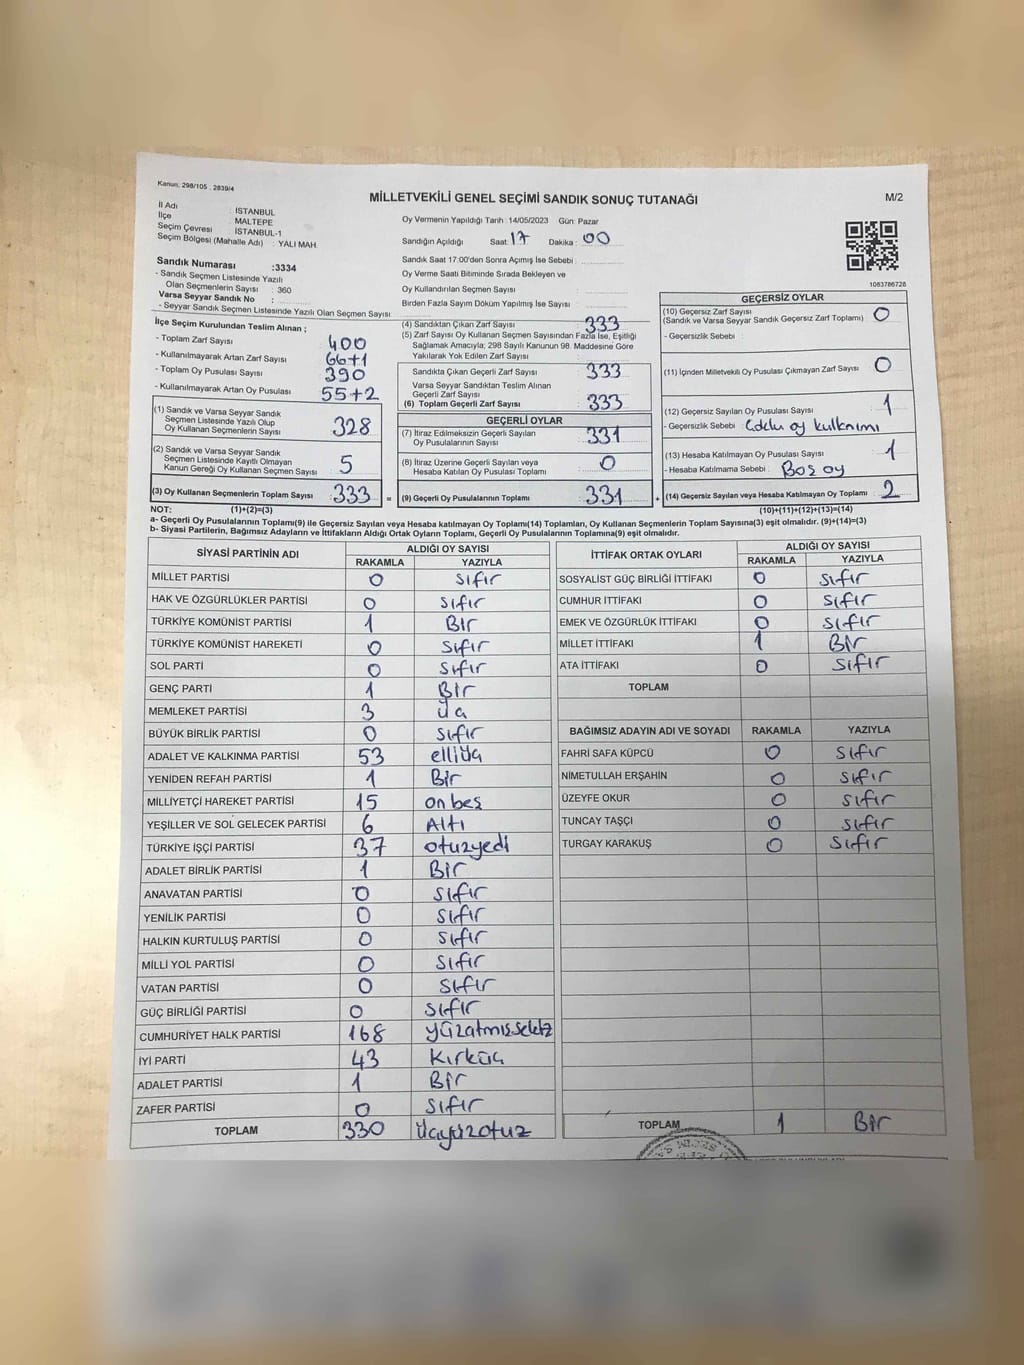 Kanun: 298/105 , 2839/4
MİLLETVEKİLİ GENEL SEÇİMİ SANDIK SONUÇ TUTANAĞI
M/2
İl Adı : İSTANBUL
İlçe : MALTEPE
Seçim Çevresi : İSTANBUL-1
Seçim Bölgesi (Mahalle Adı) : YALI MAH.
Sandık Numarası :3334
- Sandık Seçmen Listesinde Yazılı
Olan Seçmenlerin Sayısı : 360
Varsa Seyyar Sandık No :
- Seyyar Sandık Seçmen Listesinde Yazılı Olan Seçmen Sayısı
Oy Vermenin Yapıldığı Tarih :14/05/2023 Gün: Pazar
Sandığın Açıldığı Saat: 17 Dakika : 00
Sandık Saat 17:00'den Sonra Açımış İse Sebebi :
Oy Verme Saati Bitiminde Sırada Bekleyen ve
Oy Kullandırılan Seçmen Sayısı :
Birden Fazla Sayım Döküm Yapılmış İse Sayısı
1083786728
İlçe Seçim Kurulundan Teslim Alınan ;
- Toplam Zarf Sayısı : 400
- Kullanılmayarak Artan Zarf Sayısı : 66+1
- Toplam Oy Pusulası Sayısı : 390
- Kullanılmayarak Artan Oy Pusulası : 55+2
(1) Sandık ve Varsa Seyyar Sandık
Seçmen Listesinde Yazılı Olup
Oy Kullanan Seçmenlerin Sayısı : 328
(2) Sandık ve Varsa Seyyar Sandık
Seçmen Listesinde Kayıtlı Olmayan
Kanun Gereği Oy Kullanan Seçmen Sayısı : 5
(3) Oy Kullanan Seçmenlerin Toplam Sayısı : 333 =
(4) Sandıktan Çıkan Zarf Sayısı : 333
(5) Zarf Sayısı Oy Kullanan Seçmen Sayısından Fazla İse, Eşitliği
Sağlamak Amacıyla; 298 Sayılı Kanunun 98. Maddesine Göre
Yakılarak Yok Edilen Zarf Sayısı :
Sandıkta Çıkan Geçerli Zarf Sayısı : 333
Varsa Seyyar Sandıktan Teslim Alınan
Geçerli Zarf Sayısı :
(6) Toplam Geçerli Zarf Sayısı : 333
GEÇERLİ OYLAR
(7) İtiraz Edilmeksizin Geçerli Sayılan
Oy Pusulalarının Sayısı : 331
(8) İtiraz Üzerine Geçerli Sayılan veya
Hesaba Katılan Oy Pusulası Toplamı : 0
(9) Geçerli Oy Pusulalarının Toplamı : 331 +
GEÇERSİZ OYLAR
(10) Geçersiz Zarf Sayısı
(Sandık ve Varsa Seyyar Sandık Geçersiz Zarf Toplamı) : 0
- Geçersizlik Sebebi :
(11) İçinden Milletvekili Oy Pusulası Çıkmayan Zarf Sayısı : 0
(12) Geçersiz Sayılan Oy Pusulası Sayısı : 1
- Geçersizlik Sebebi :
(13) Hesaba Katılmayan Oy Pusulası Sayısı : 1
- Hesaba Katılmama Sebebi : Boş oy
(14) Geçersiz Sayılan veya Hesaba Katılmayan Oy Toplamı : 2
NOT: (1)+(2)=(3) (10)+(11)+(12)+(13)=(14)
a- Geçerli Oy Pusulalarının Toplamı(9) ile Geçersiz Sayılan veya Hesaba katılmayan Oy Toplamı(14) Toplamları, Oy Kullanan Seçmenlerin Toplam Sayısına(3) eşit olmalıdır. (9)+(14)=(3)
b- Siyasi Partilerin, Bağımsız Adayların ve İttifakların Aldığı Ortak Oyların Toplamı, Geçerli Oy Pusulalarının Toplamına(9) eşit olmalıdır.
SİYASİ PARTİNİN ADI ALDIĞI OY SAYISI
RAKAMLA YAZIYLA
MİLLET PARTİSİ 0 sıfır
HAK VE ÖZGÜRLÜKLER PARTİSİ 0 sıfır
TÜRKİYE KOMÜNİST PARTİSİ 1 Bir
TÜRKİYE KOMÜNİST HAREKETİ 0 sıfır
SOL PARTİ 0 sıfır
GENÇ PARTİ 1 Bir
MEMLEKET PARTİSİ 3 üç
BÜYÜK BİRLİK PARTİSİ 0 sıfır
ADALET VE KALKINMA PARTİSİ 53 elliüç
YENİDEN REFAH PARTİSİ 1 Bir
MİLLİYETÇİ HAREKET PARTİSİ 15 on beş
YEŞİLLER VE SOL GELECEK PARTİSİ 6 Altı
TÜRKİYE İŞÇİ PARTİSİ 37 otuzyedi
ADALET BİRLİK PARTİSİ 1 Bir
ANAVATAN PARTİSİ 0 sıfır
YENİLİK PARTİSİ 0 sıfır
HALKIN KURTULUŞ PARTİSİ 0 sıfır
MİLLİ YOL PARTİSİ 0 sıfır
VATAN PARTİSİ 0 sıfır
GÜÇ BİRLİĞİ PARTİSİ 0 sıfır
CUMHURİYET HALK PARTİSİ 168 yüzatmışsekiz
İYİ PARTİ 43 Kırküç
ADALET PARTİSİ 1 Bir
ZAFER PARTİSİ 0 sıfır
TOPLAM 330 üçyüzotuz
İTTİFAK ORTAK OYLARI ALDIĞI OY SAYISI
RAKAMLA YAZIYLA
SOSYALİST GÜÇ BİRLİĞİ İTTİFAKI 0 sıfır
CUMHUR İTTİFAKI 0 sıfır
EMEK VE ÖZGÜRLÜK İTTİFAKI 0 sıfır
MİLLET İTTİFAKI 1 Bir
ATA İTTİFAKI 0 sıfır
TOPLAM
BAĞIMSIZ ADAYIN ADI VE SOYADI RAKAMLA YAZIYLA
FAHRİ SAFA KÜPCÜ 0 sıfır
NİMETULLAH ERŞAHİN 0 sıfır
ÜZEYFE OKUR 0 sıfır
TUNCAY TAŞÇI 0 sıfır
TURGAY KARAKUŞ 0 sıfır
TOPLAM 1 Bir